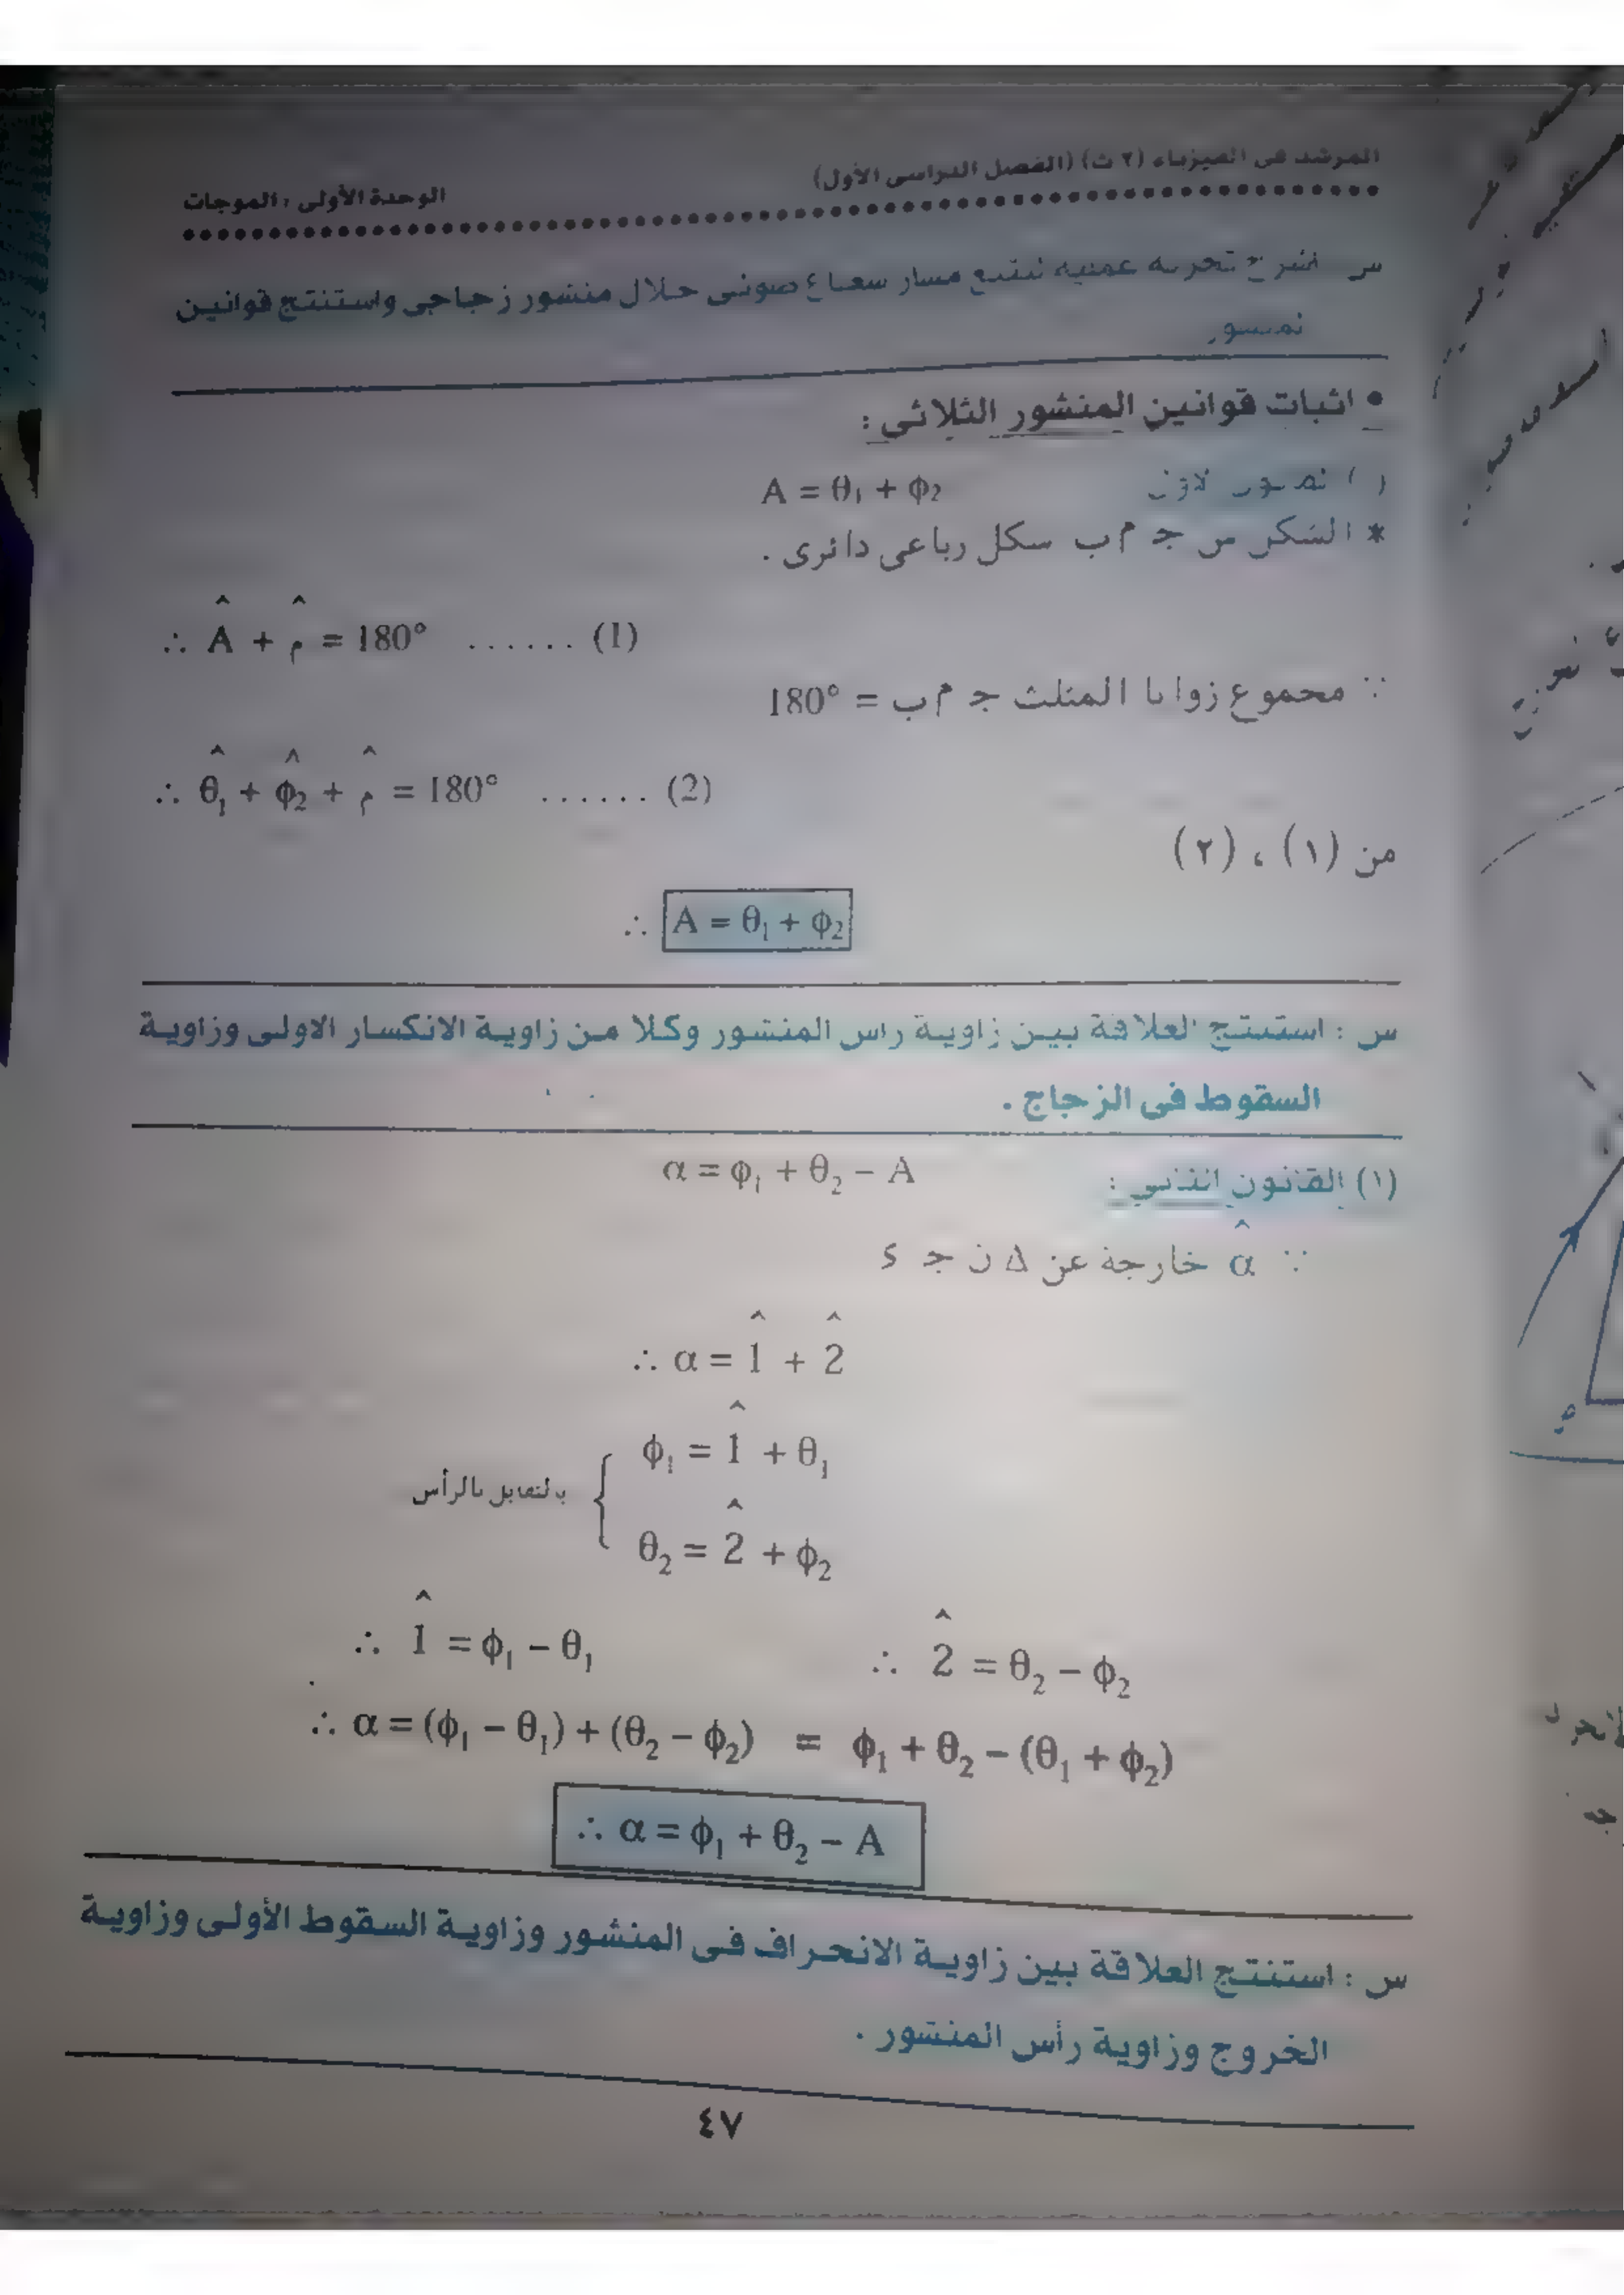 المرشد فى الفيزياء (٢ ث) (الفصل الدراسى الأول)
الوحدة الأولى : الموجات
س اشرح تجربة عملية لتتبع مسار شعاع ضوئى خلال منشور زجاجى واستنتج قوانين
المنشور
• اثبات قوانين المنشور الثلاثى :
A = θ₁ + φ₂
* الشكل س جـ م ب شكل رباعى دائرى .
∴ Â + م̂ = 180° ...... (1)
∵ مجموع زوايا المثلث جـ م ب = 180°
∴ θ̂₁ + φ̂₂ + م̂ = 180° ...... (2)
من (١) ، (٢)
∴ A = θ₁ + φ₂
س : استنتج العلاقة بين زاوية راس المنشور وكلا من زاوية الانكسار الاولى وزاوية
السقوط فى الزجاج .
(١) القانون الثانى : α = φ₁ + θ₂ − A
∵ α̂ خارجة عن Δ ن جـ ء
∴ α = 1̂ + 2̂
φ₁ = 1̂ + θ₁
بالتقابل بالرأس
θ₂ = 2̂ + φ₂
∴ 1̂ = φ₁ − θ₁ ∴ 2̂ = θ₂ − φ₂
∴ α = (φ₁ − θ₁) + (θ₂ − φ₂) = φ₁ + θ₂ − (θ₁ + φ₂)
∴ α = φ₁ + θ₂ − A
س : استنتج العلاقة بين زاوية الانحراف فى المنشور وزاوية السقوط الأولى وزاوية
الخروج وزاوية رأس المنشور .
٤٧